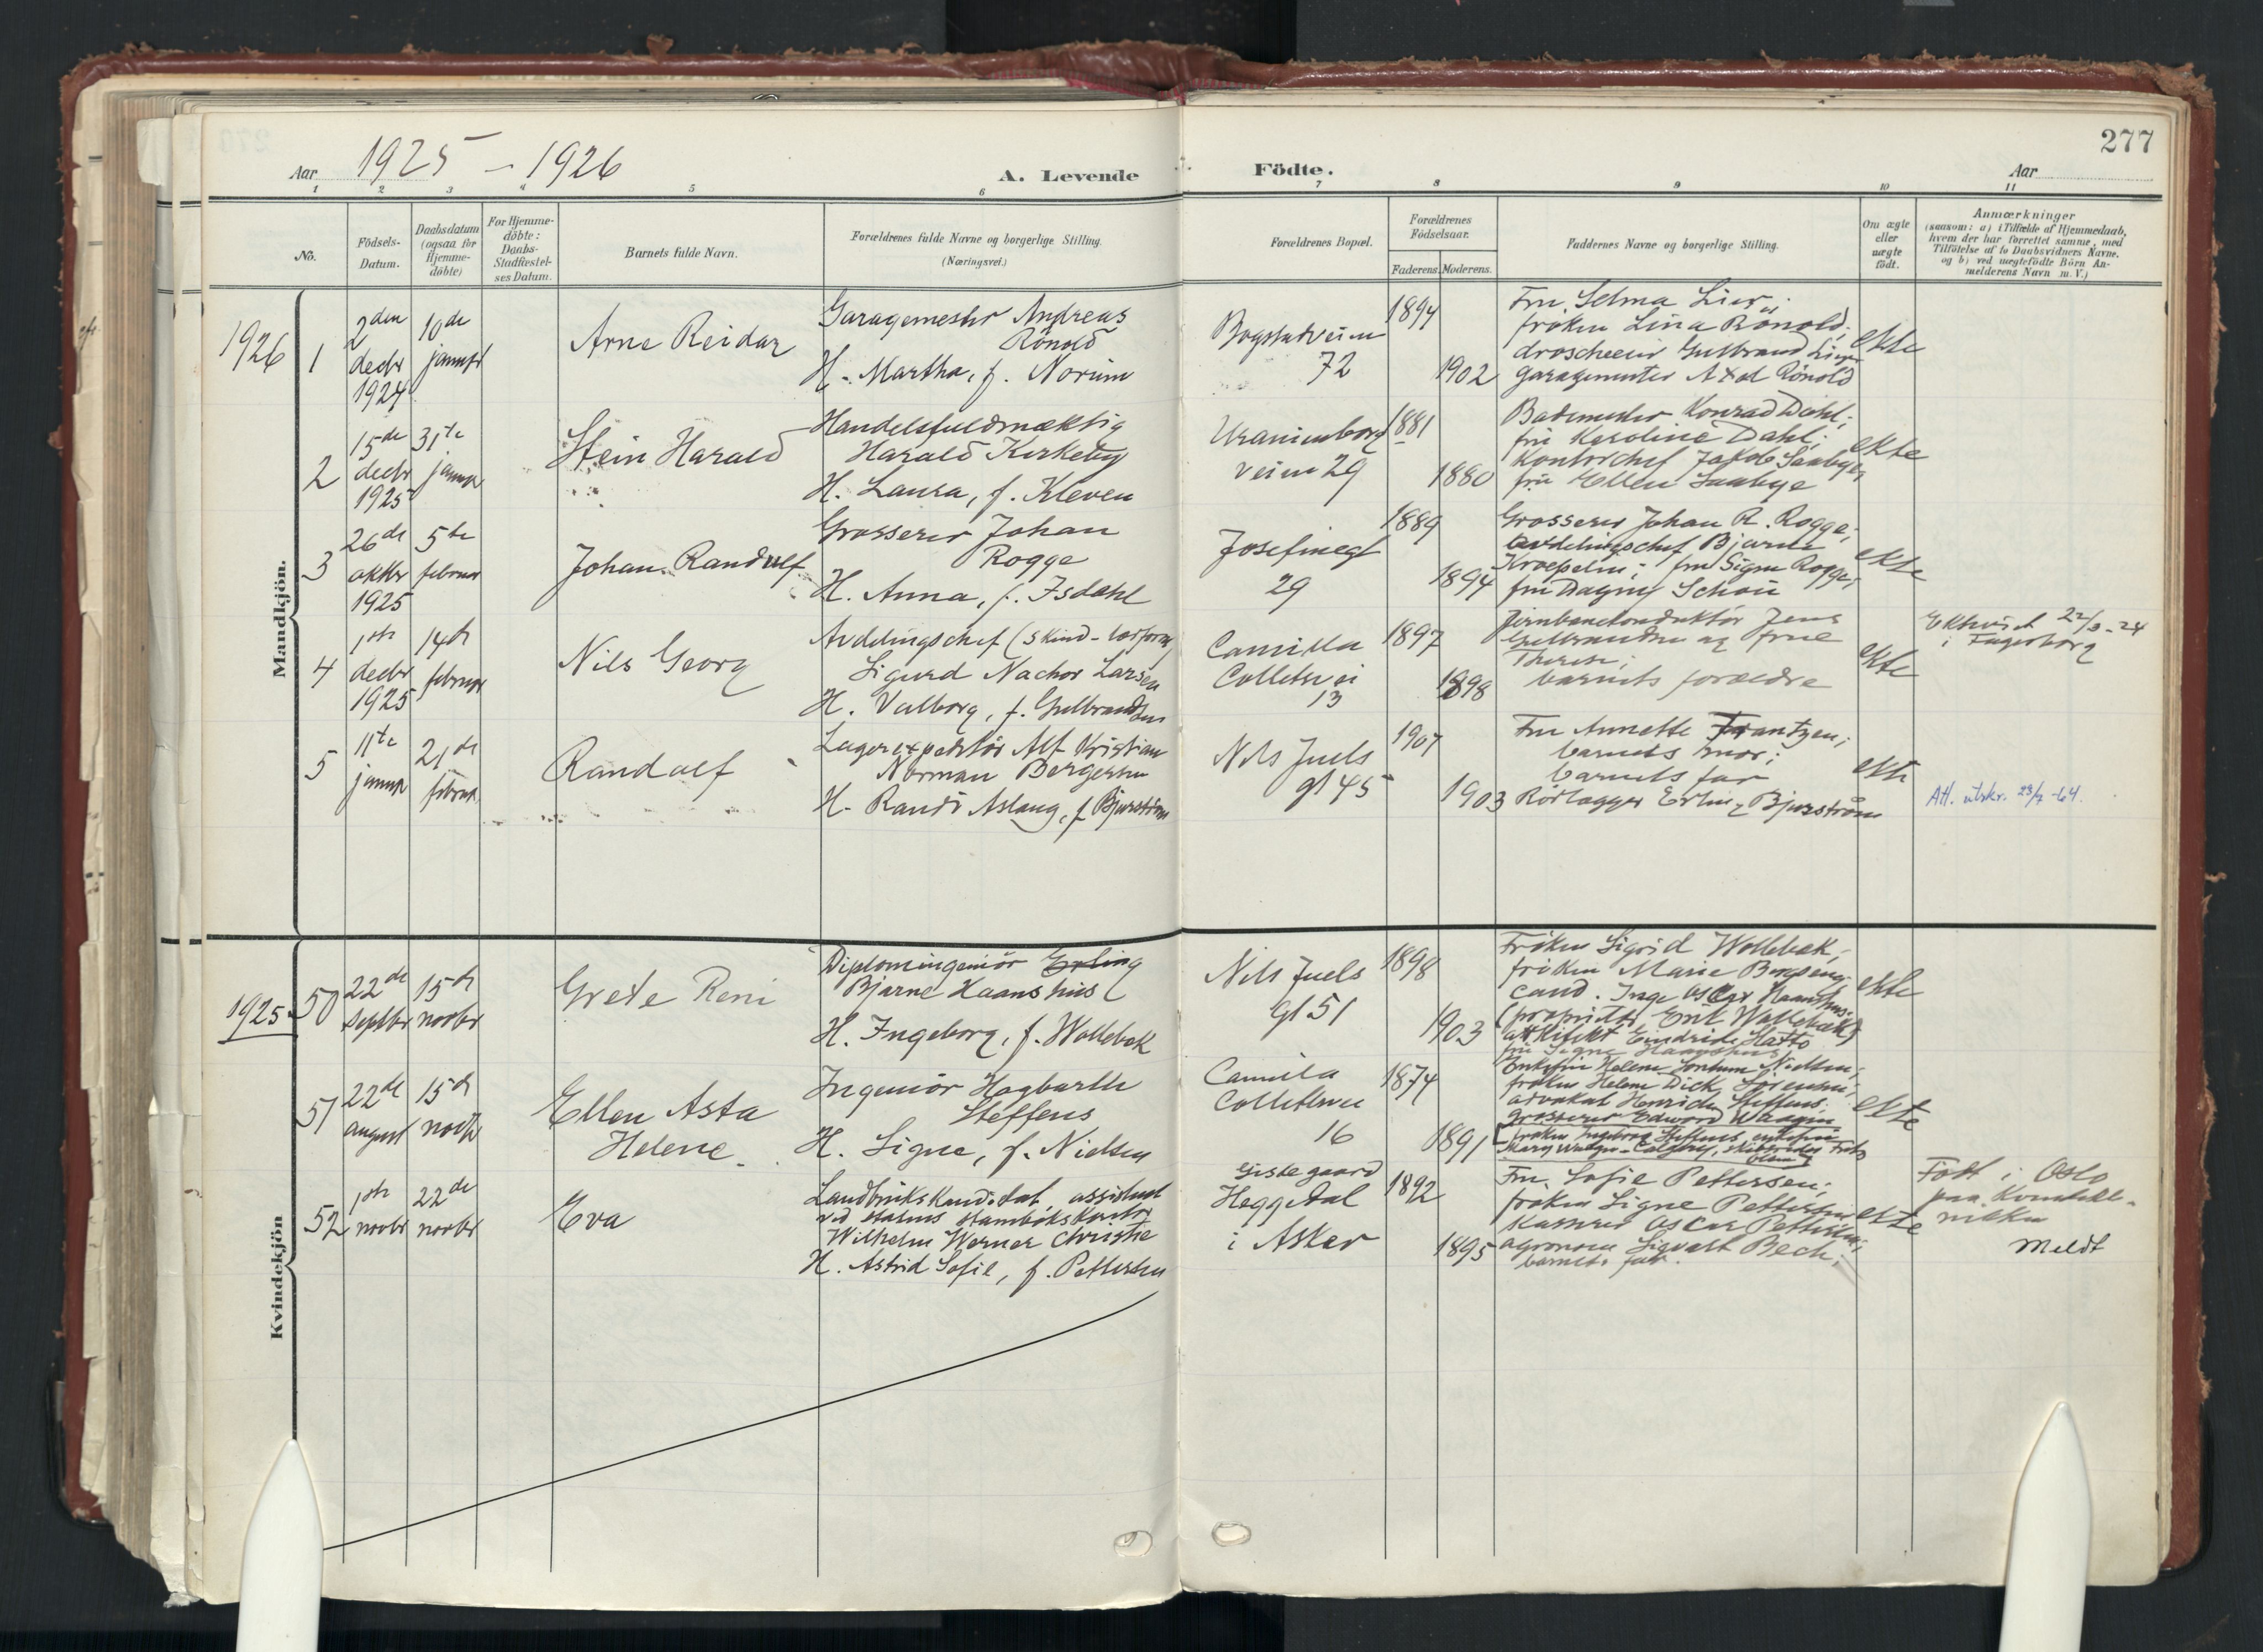 277
Aar 1925 - 1926
A. Levende Födte.
Aar
1 2 3 4 5 6 7 8 9 10 11
No.
Födsels-
Datum.
Daabsdatum
(ogsaa for
Hjemme-
döbte)
For Hjemme-
döbte:
Daabs-
Stadfæstel-
ses Datum.
Barnets fulde Navn.
Forældrenes fulde Navne og borgerlige Stilling.
(Næringsvei.)
Forældrenes Bopæl.
Forældrenes
Födselsaar.
Faderens. Moderens.
Faddernes Navne og borgerlige Stilling.
Om ægte
eller
uægte
födt.
Anmærkninger
(saasom: a) i Tilfælde af Hjemmedaab,
hvem der har forrettet samme, med
Tilföielse af to Daabsvidners Navne,
og b) ved uægtefödte Börn An-
melderens Navn m. V.)
Mandkjön.
1926
1
2den
decbr
1924
10de
januar
Arne Reidar
Garagemester Andreas
Rönold
H. Martha, f. Norum
Bogstadveien
72
1894
1902
Fru Selma Lier;
fröken Lina Rönold;
droscheeier Gulbrand Lier
garagemester Axel Rönold
ekte
2
15de
decbr
1925
31te
januar
Stein Harald
Handelsfuldmæktig
Harald Kirkeby
H. Laura, f. Kleven
Uranienborg
veien 29
1881
1880
Bademester Konrad Dahl;
fru Karoline Dahl;
Kontorchef Jakob Saabye,
fru Ellen Saabye
ekte
3
26de
oktbr
1925
5te
februar
Johan Randulf
Grosserer Johan
Rogge
H. Anna, f. Isdahl
Josefinegt
29
1889
1894
Grosserer Johan R. Rogge;
avdelingschef Bjarne
Kroepelin; fru Signe Rogge;
fru Dagny Schou
ekte
4
1ste
decbr
1925
14de
februar
Nils Georg
Avdelingschef (skind-
Sigurd Nachor Larsen
H. Valborg, f. Gulbrandsen
Camilla
Colletsvei
13
1897
1898
Jernbanekonduktör Jens
Gulbrandsen og frue
Therese;
barnets forældre
ekte
Ektevied 22/3-24
i Fagerborg
5
11te
januar
21de
februar
Randolf
Lagerexpeditör Alf Kristian
Norman Bergersen
H. Randi Aslaug, f. Bjurström
Nils Juels
gt 45
1907
1903
Fru Annette Frantzen;
barnets mor;
barnets far
Rörlægger Erling Bjurström
ekte
Att. utskr. 23/7-64.
Kvindekjön
1925
50
22de
septbr
15de
novbr
Grete Reni
Diplomingeniör Erling
Bjarne Haanshus
H. Ingeborg, f. Wollebæk
Nils Juels
gt 51
1898
1903
Fröken Sigrid Wollebæk;
fröken Marie Borgseng;
cand. Inge Oscar Haanshus;
(proprietær Erik Wollebæk)
arkitekt Eindride
fru Signe Haanshus
ekte
51
22de
august
15de
novbr
Ellen Asta
Helene
Ingeniör Hagbarth
Steffens
H. Signe, f. Nielsen
Camilla
Colletsvei
16
1874
1891
Enkefru Helene Nielsen;
fröken Helene Dick Sörensen;
advokat Henrich Steffens;
grosserer Edward Waagen
fröken Ingeborg Steffens, enkefru
ekte
52
1ste
novbr
22de
novbr
Eva
Landbrukskandidat, assistent
ved statens stambokskontor
Wilhelm Werner Christie
H. Astrid Sofie, f. Pettersen
Gistegaard
Heggedal
i Asker
1892
1895
Fru Sofie Pettersen;
fröken Signe Pettersen
kasserer Oscar Pettersen;
agronom Sigvalt Bech;
barnets far.
ekte
Födt i Oslo
paa Kvindekli-
nikken
Meldt